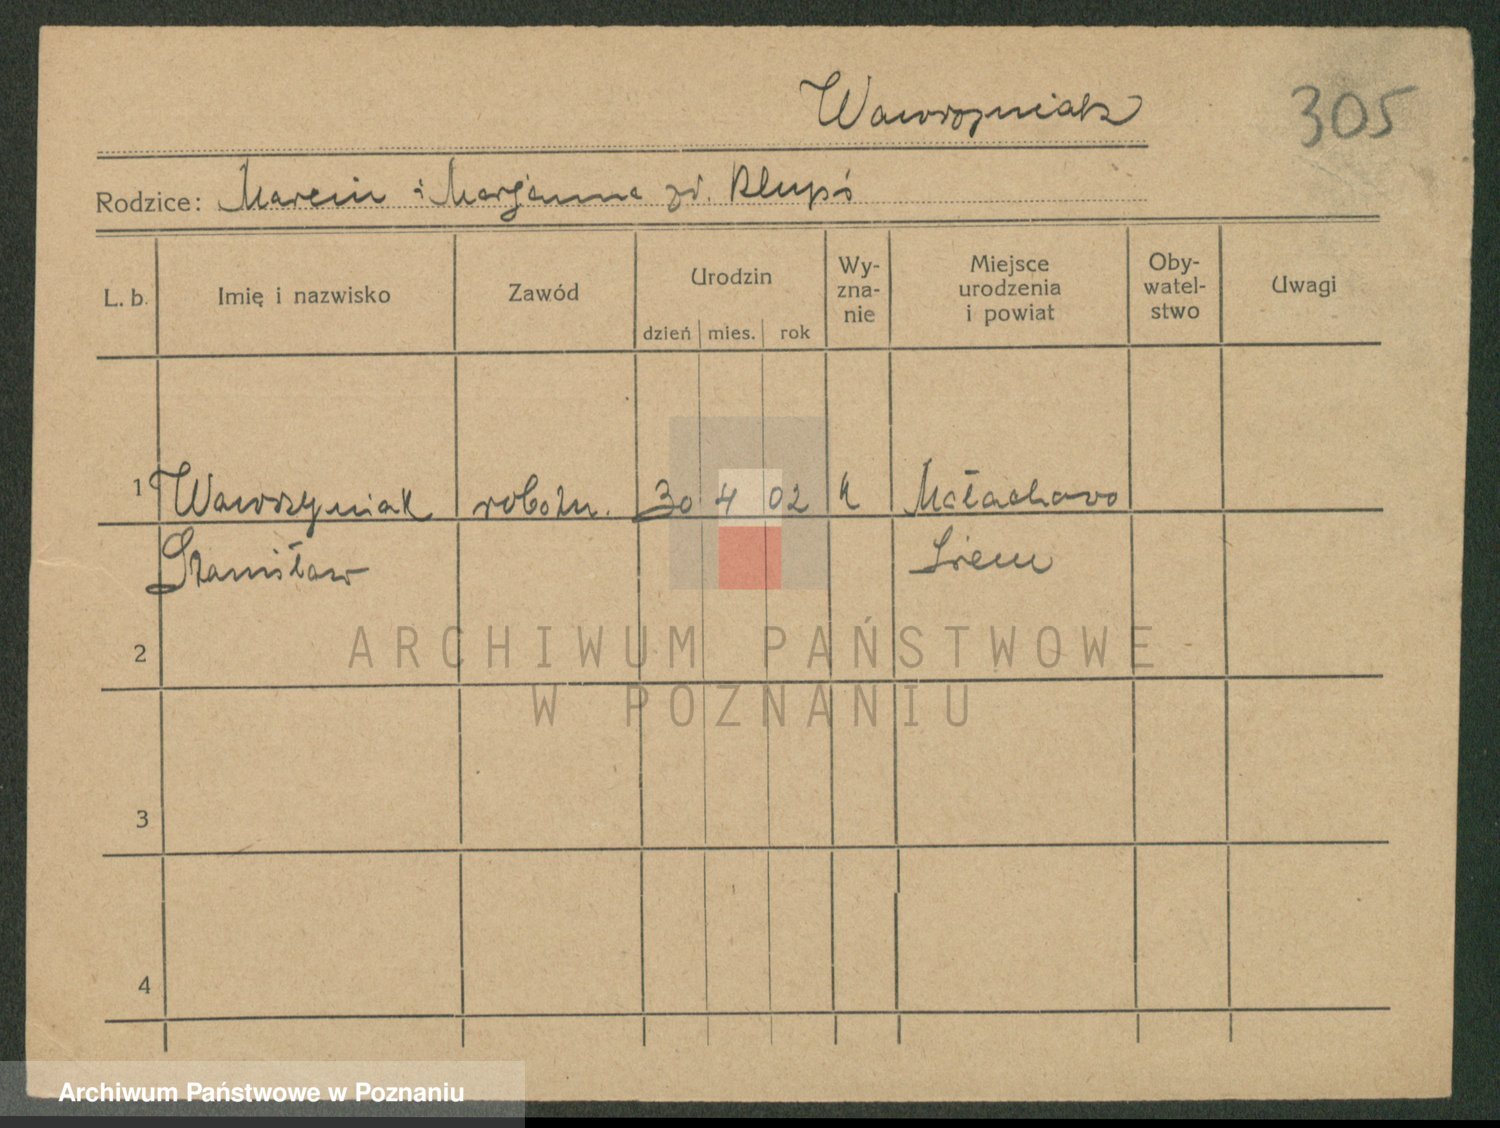 Wawrzyniak
305
Rodzice: Marcin i Marjanna zd. Słupś
L. b.
Imię i nazwisko
Zawód
Urodzin
dzień mies. rok
Wy-
zna-
nie
Miejsce
urodzenia
i powiat
Oby-
watel-
stwo
Uwagi
1 Wawrzyniak robotn. 30 4 02 k Małachowo
Stanisław Śrem
2
ARCHIWUM PAŃSTWOWE
W POZNANIU
3
4
Archiwum Państwowe w Poznaniu